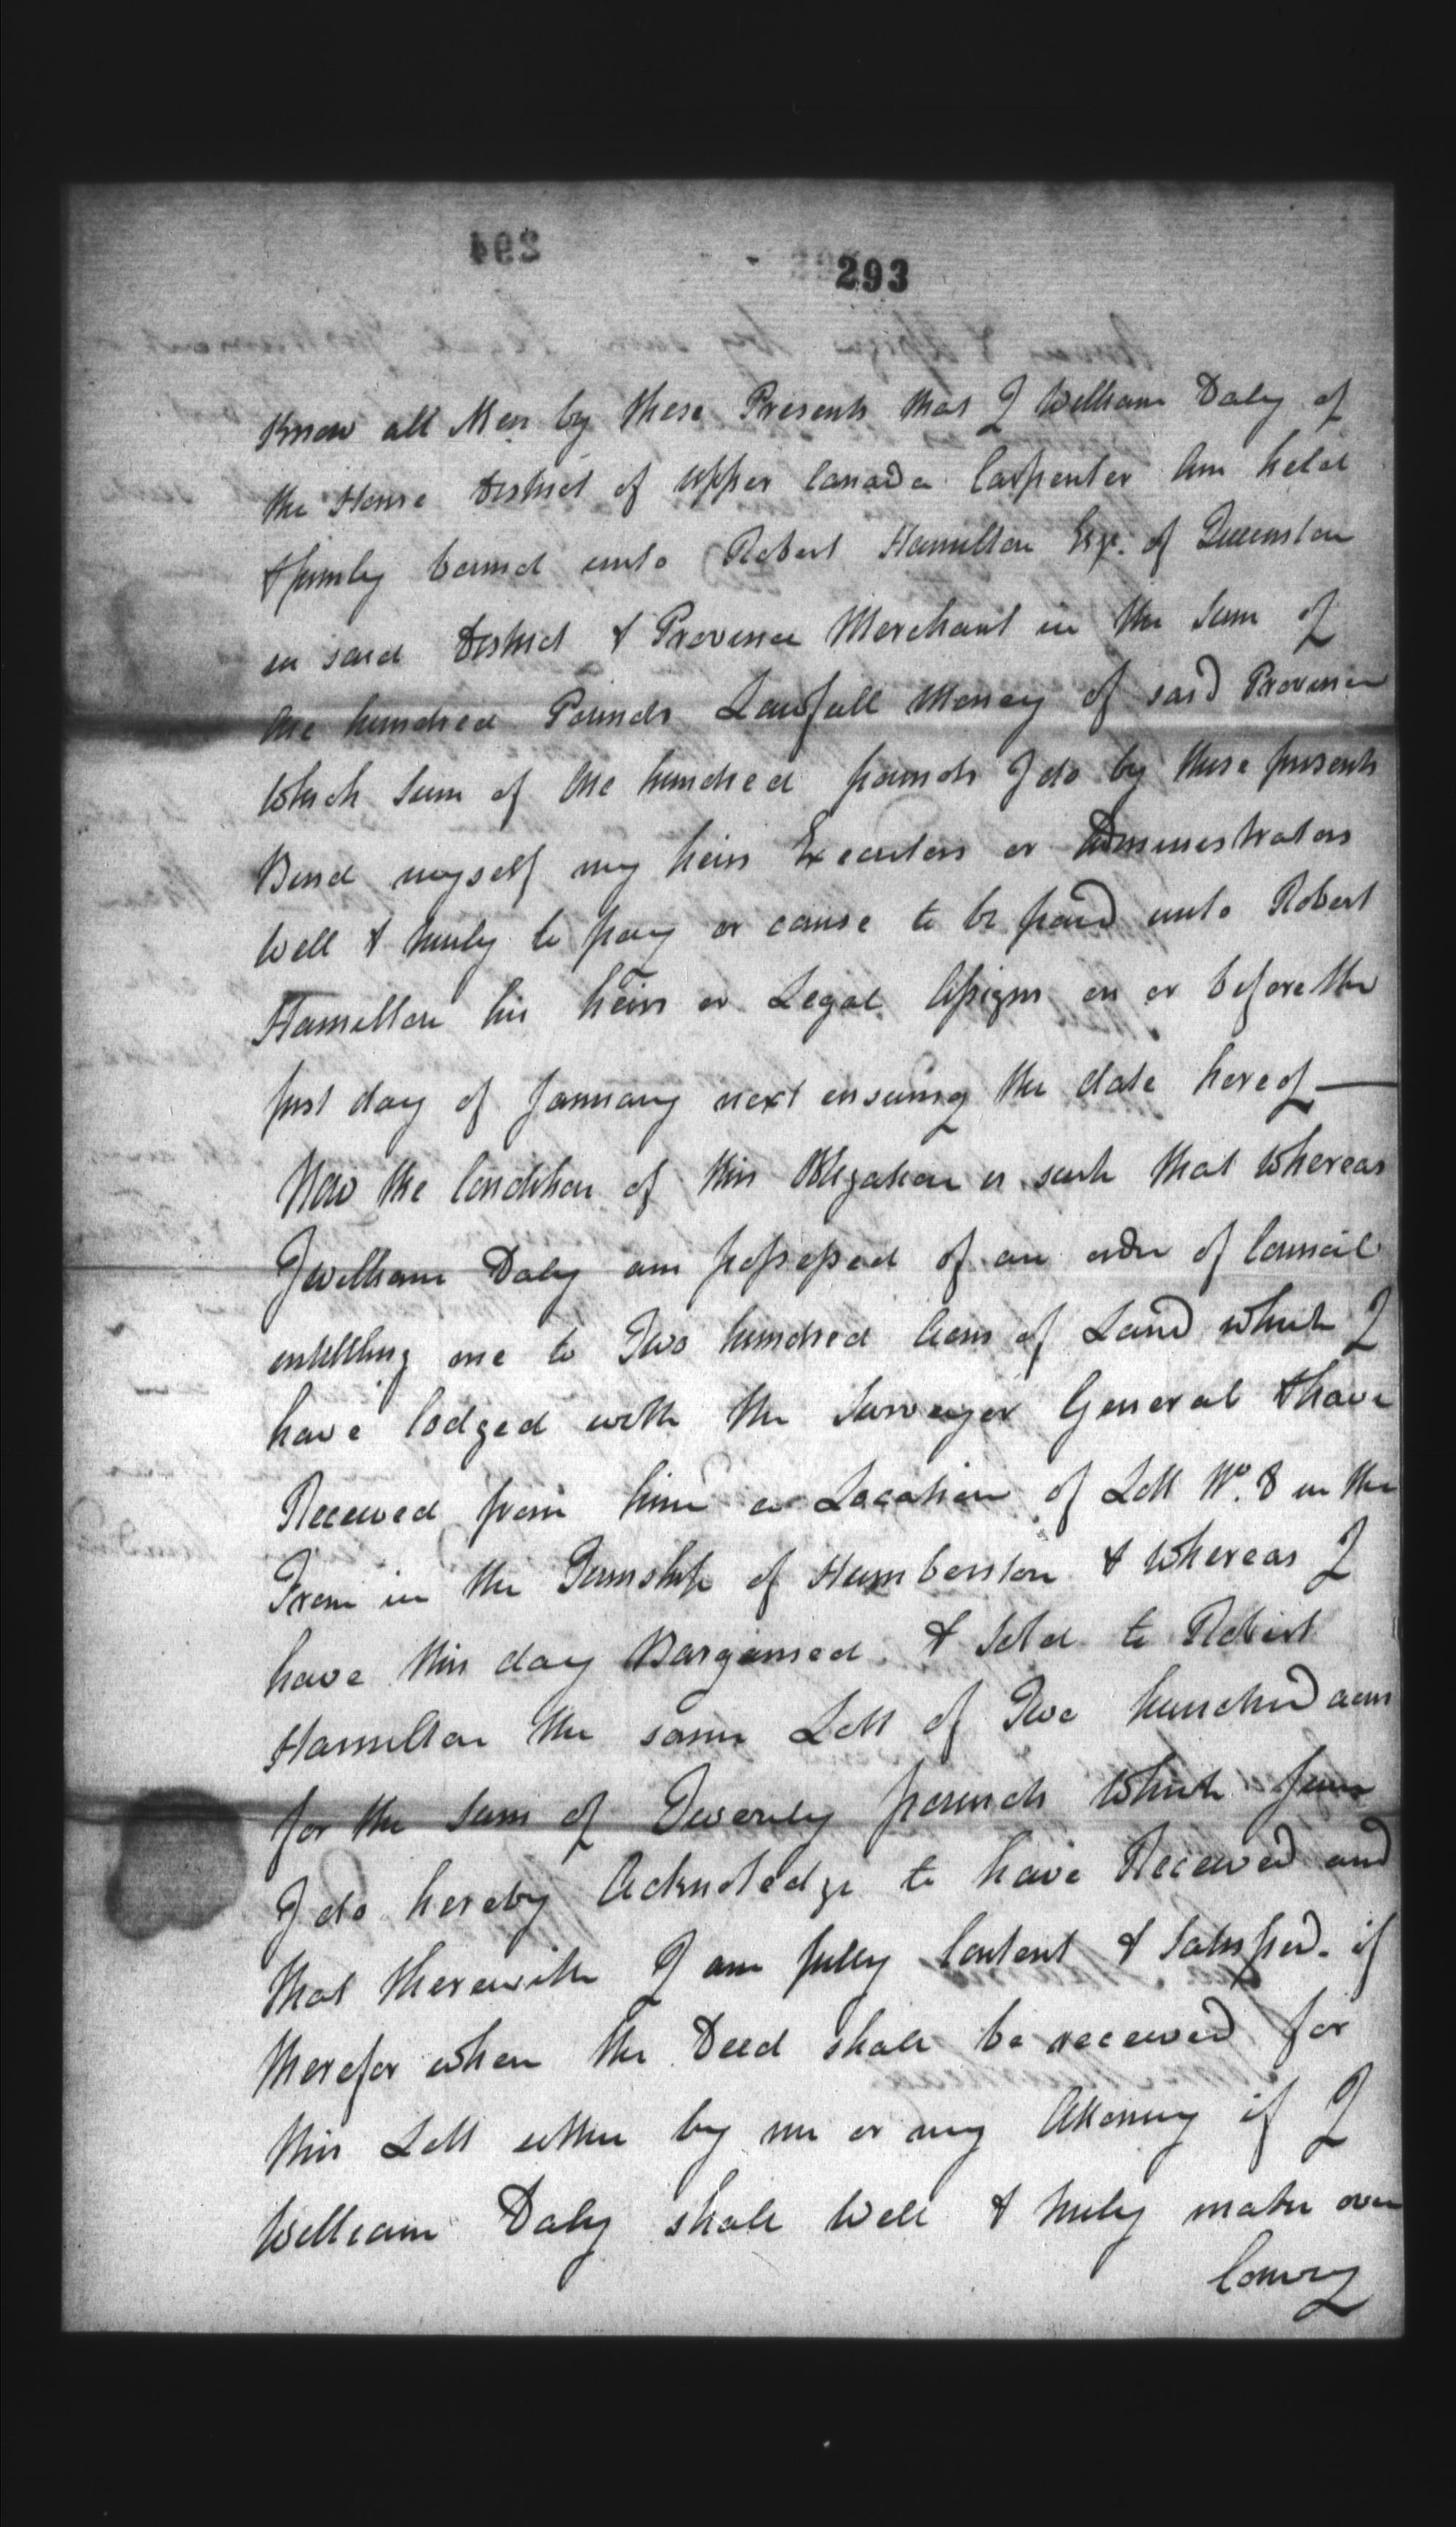 293
Know all Men by these Presents that I William Daly of
the Home District of upper Canada Carpenter Am held
& firmly bound unto Robert Hamilton Esqr. of Queenston
in said District & Province Merchant in the Sum of
One hundred Pounds Lawfull Money of said Province
Which Sum of One hundred pounds I do by these presents
Bind myself my heirs Executors or Administrators
Well & truly to pay or cause to be paid unto Robert
Hamilton his heirs or Legal Assigns on or before the
first day of January next ensuing the date hereof —
Now the Condition of this Obligation is such that Whereas
I William Daly am possessed of an order of Council
entittling me to Two hundred Acres of Land which I
have lodged with the Surveyor General & have
Received from him a Location of Lott No. 8 in the
Front in the Township of Humberston & Whereas I
have this day Bargained & Sold to Robert
Hamilton the same Lott of Two hundred acres
for the Sum of Twenty pounds Which Sum
I do hereby Acknoledge to have Received and
that therewith I am fully Content & Satisfied. if
therefor when the Deed shall be received for
this Lott either by me or my Attorney if I
William Daly shall Well & truly make over
Convey